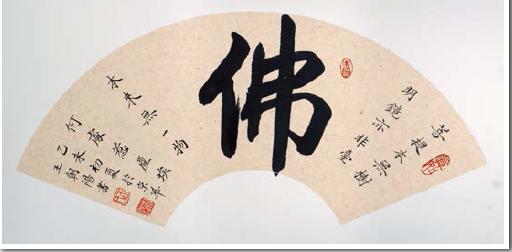 菩提本無樹
明鏡亦非臺
佛
本來無一物
何處惹塵埃
乙未初夏於京華
王朝陽書